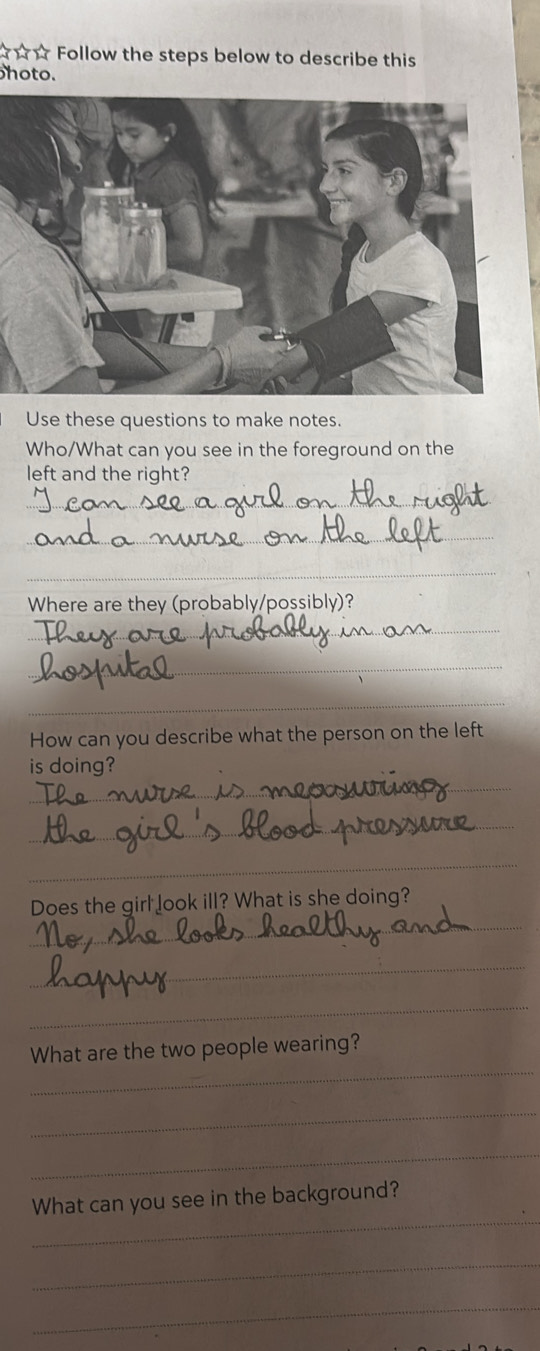 ☆☆☆ Follow the steps below to describe this
photo.
Use these questions to make notes.
Who/What can you see in the foreground on the
left and the right?
I can see a girl on the right
and a nurse on the left
Where are they (probably/possibly)?
They are probably in an
hospital
How can you describe what the person on the left
is doing?
The nurse is measuring
the girl's blood pressure
Does the girl look ill? What is she doing?
No, she looks healthy and
happy
What are the two people wearing?
What can you see in the background?